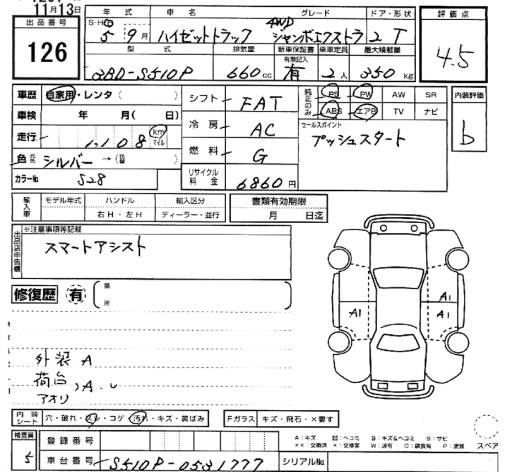 11月13日
出品番号
126
年式 車名 グレード ドア・形状
S・H 5 9月 ハイゼットトラック 4WD ジャンボエクストラ 2 T
評価点
4.5
型式 排気量 新車保証書 有無記入 乗車定員 最大積載量
3BD-S510P 660cc 有 2人 350kg
車歴 自家用・レンタ( )
シフト FAT
純正のみ PS PW AW SR
ABS エアB TV ナビ
内装評価
b
車検 年 月( )
冷房 AC
セールスポイント
プッシュスタート
走行 1,108 km マイル
燃料 G
色 シルバー→( )
カラーNo S28
リサイクル料金 6860円
輸入車 モデル年式 ハンドル 輸入区分
右H・左H ディーラー・並行
書類有効期限
月 日迄
出品店申告欄
※注意事項等記載
スマートアシスト
修復歴 有 箇所
A1 A1
外装 A
荷台
アオリ
内装シート 穴・破れ・スレ・コゲ・汚れ・キズ・黄ばみ
Fガラス キズ・飛石・×要す
A:キズ U:ヘコミ B:キズ&ヘコミ S:サビ
××:交換済 ×:要交換 W:波有 C:腐食有 P:塗装
スペア
検査員
5
登録番号
車台番号 S510P-0531777
シリアルNo.